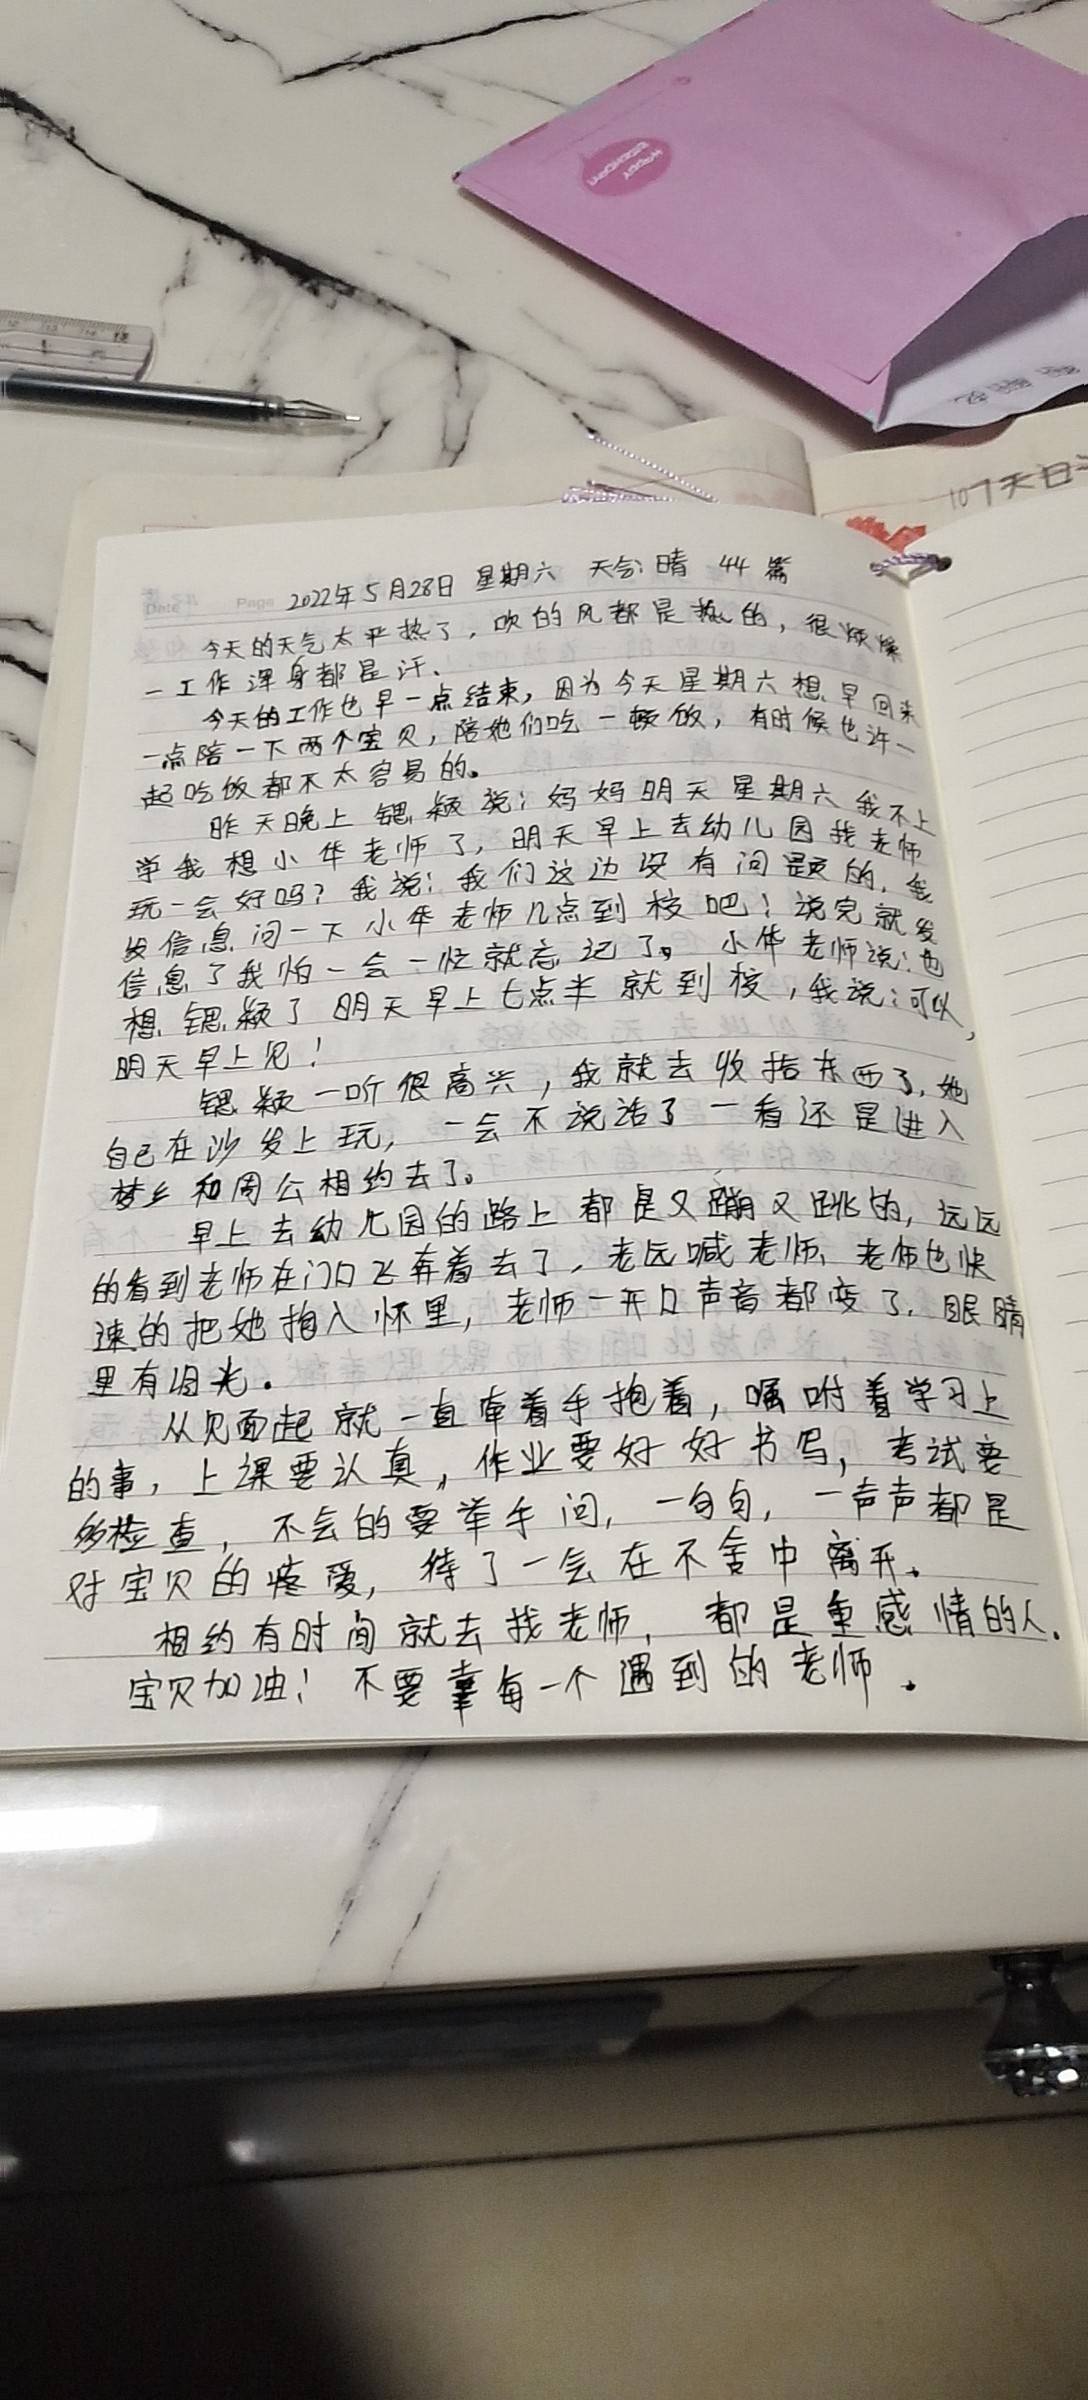 HAPPY
BIRTHDAY!
107天日
Date
Page
2022年5月28日 星期六 天气:晴 44篇
今天的天气太平热了,吹的风都是热的,很烦燥
一工作浑身都是汗、
今天的工作也早一点结束,因为今天星期六想早回来
一点陪一下两个宝贝,陪她们吃一顿饭,有时候也许一
起吃饭都不太容易的。
昨天晚上锶颖说:妈妈明天星期六我不上
学我想小华老师了,明天早上去幼儿园找老师
玩一会好吗?我说:我们这边没有问题的,我
发信息问一下小华老师几点到校吧!说完就发
信息了我怕一会一忙就忘记了。小华老师说:也
想锶颖了明天早上七点半就到校,我说:可以,
明天早上见!
锶颖一听很高兴,我就去收拾东西了,她
自己在沙发上玩,一会不说话了一看还是进入
梦乡和周公相约去了。
早上去幼儿园的路上都是又蹦又跳的,远远
的看到老师在门口飞奔着去了,老远喊老师、老师也快
速的把她抱入怀里,老师一开口声音都变了,眼睛
里有泪光.
从见面起就一直牵着手抱着,嘱咐着学习上
的事,上课要认真,作业要好好书写,考试要
多检查,不会的要举手问,一句句,一声声都是
对宝贝的疼爱,待了一会在不舍中离开、
相约有时间就去找老师,都是重感情的人.
宝贝加油!不要辜每一个遇到的老师.